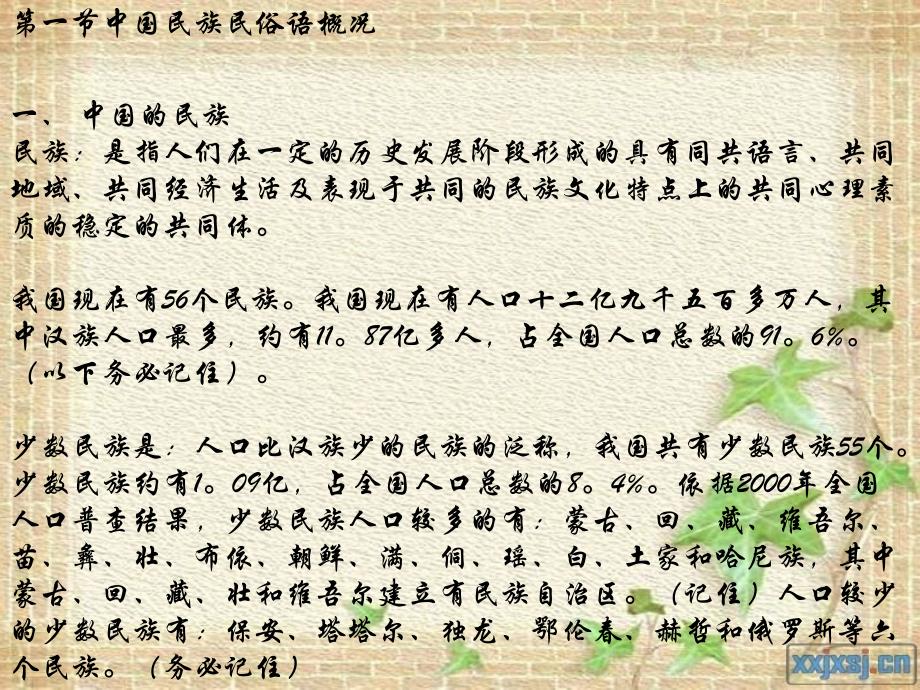 第一节中国民族民俗语概况
一、 中国的民族
民族：是指人们在一定的历史发展阶段形成的具有同共语言、共同
地域、共同经济生活及表现于共同的民族文化特点上的共同心理素
质的稳定的共同体。
我国现在有56个民族。我国现在有人口十二亿九千五百多万人，其
中汉族人口最多，约有11。87亿多人，占全国人口总数的91。6%。
（以下务必记住）。
少数民族是：人口比汉族少的民族的泛称，我国共有少数民族55个。
少数民族约有1。09亿，占全国人口总数的8。4%。依据2000年全国
人口普查结果，少数民族人口较多的有：蒙古、回、藏、维吾尔、
苗、彝、壮、布依、朝鲜、满、侗、瑶、白、土家和哈尼族，其中
蒙古、回、藏、壮和维吾尔建立有民族自治区。（记住）人口较少
的少数民族有：保安、塔塔尔、独龙、鄂伦春、赫哲和俄罗斯等六
个民族。（务必记住）
xxjxsj.cn